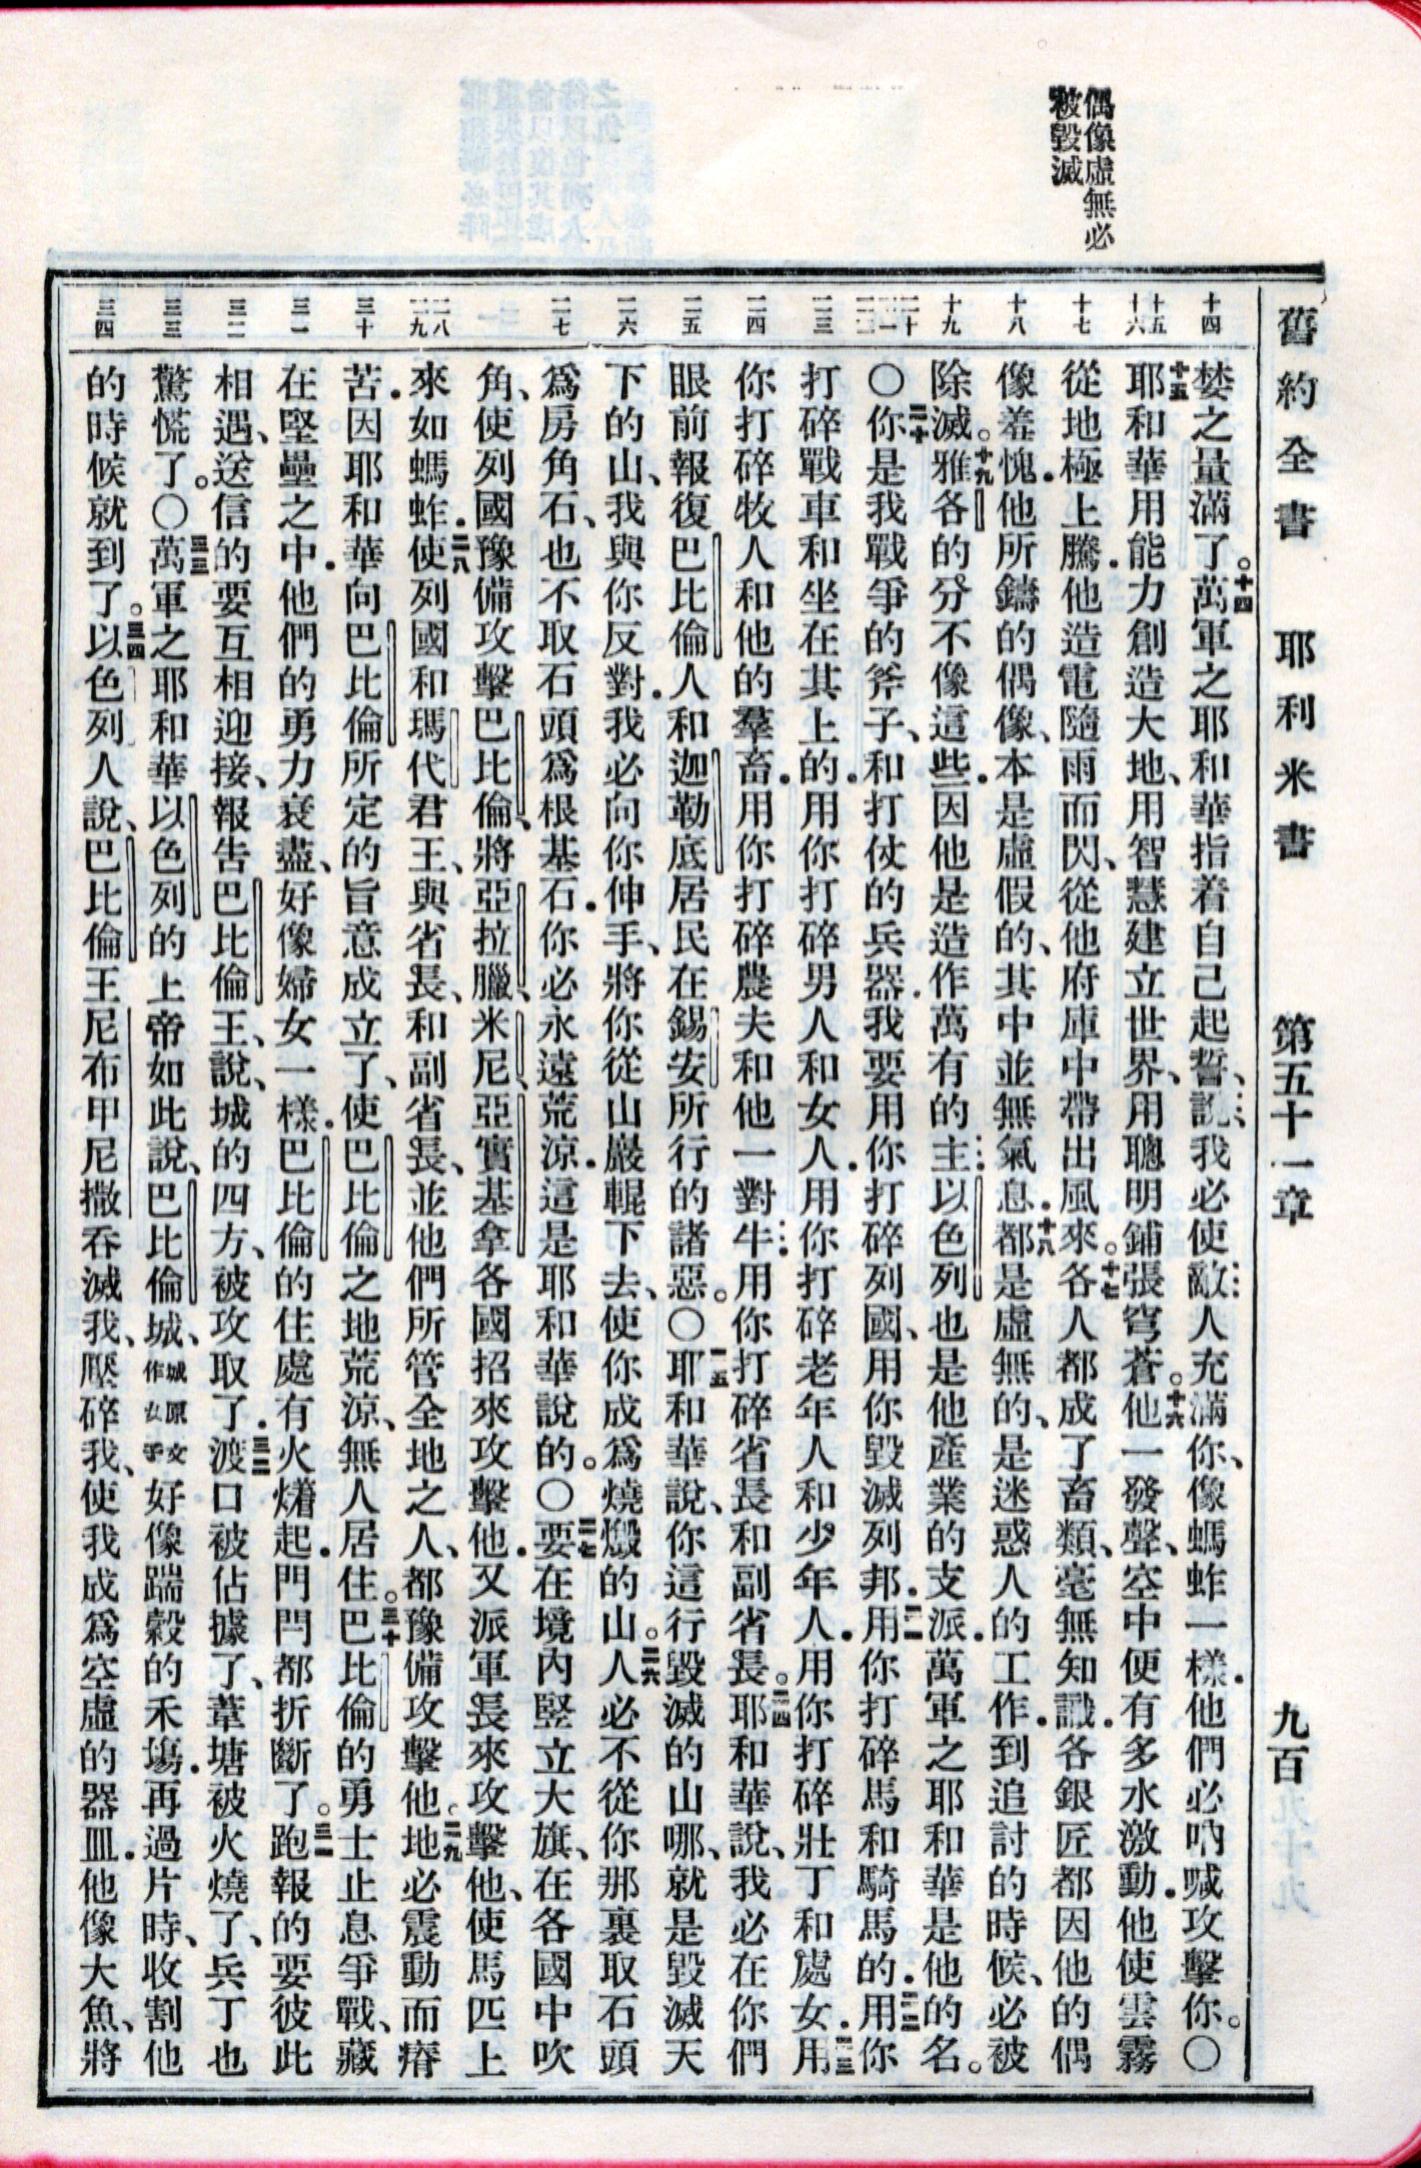 偶像虛無必
被毀滅
舊約全書 耶利米書 第五十一章 九百
十四
十五
十六
十七
十八
十九
二十
二一
二二
二三
二四
二五
二六
二七
二八
二九
三十
三一
三二
三三
三四
婪之量滿了。十四萬軍之耶和華指着自己起誓、說、我必使敵人充滿你、像螞蚱一樣．他們必吶喊攻擊你。〇
十五耶和華用能力創造大地、用智慧建立世界、用聰明鋪張穹蒼。十六他一發聲、空中便有多水激動．他使雲霧
從地極上騰．他造電隨雨而閃、從他府庫中帶出風來。十七各人都成了畜類、毫無知識．各銀匠都因他的偶
像羞愧．他所鑄的偶像、本是虛假的、其中並無氣息．十八都是虛無的、是迷惑人的工作．到追討的時候、必被
除滅。十九雅各的分不像這些．因他是造作萬有的主．以色列也是他產業的支派．萬軍之耶和華是他的名。
〇二十你是我戰爭的斧子、和打仗的兵器．我要用你打碎列國、用你毀滅列邦．二一用你打碎馬和騎馬的．二二用你
打碎戰車和坐在其上的．用你打碎男人和女人．用你打碎老年人和少年人．用你打碎壯丁和處女．二三用
你打碎牧人和他的羣畜．用你打碎農夫和他一對牛．用你打碎省長和副省長。二四耶和華說、我必在你們
眼前報復巴比倫人和迦勒底居民在錫安所行的諸惡。〇二五耶和華說、你這行毀滅的山哪、就是毀滅天
下的山、我與你反對．我必向你伸手、將你從山巖輥下去、使你成爲燒燬的山。二六人必不從你那裏取石頭
爲房角石、也不取石頭爲根基石．你必永遠荒涼．這是耶和華說的。〇二七要在境內竪立大旗、在各國中吹
角、使列國豫備攻擊巴比倫、將亞拉臘、米尼、亞實基拿各國招來攻擊他．又派軍長來攻擊他、使馬匹上
來如螞蚱．二八使列國和瑪代君王、與省長、和副省長、並他們所管全地之人、都豫備攻擊他。二九地必震動而瘠
苦．因耶和華向巴比倫所定的旨意成立了、使巴比倫之地荒涼、無人居住。三十巴比倫的勇士止息爭戰、藏
在堅壘之中．他們的勇力衰盡、好像婦女一樣．巴比倫的住處有火爦起．門閂都折斷了。三一跑報的要彼此
相遇、送信的要互相迎接、報吿巴比倫王、說、城的四方、被攻取了．三二渡口被佔據了、葦塘被火燒了、兵丁也
驚慌了。〇三三萬軍之耶和華以色列的上帝如此說、巴比倫城、城原文作女子好像踹穀的禾場．再過片時、收割他
的時候就到了。三四以色列人說、巴比倫王尼布甲尼撒吞滅我、壓碎我、使我成爲空虛的器皿．他像大魚、將